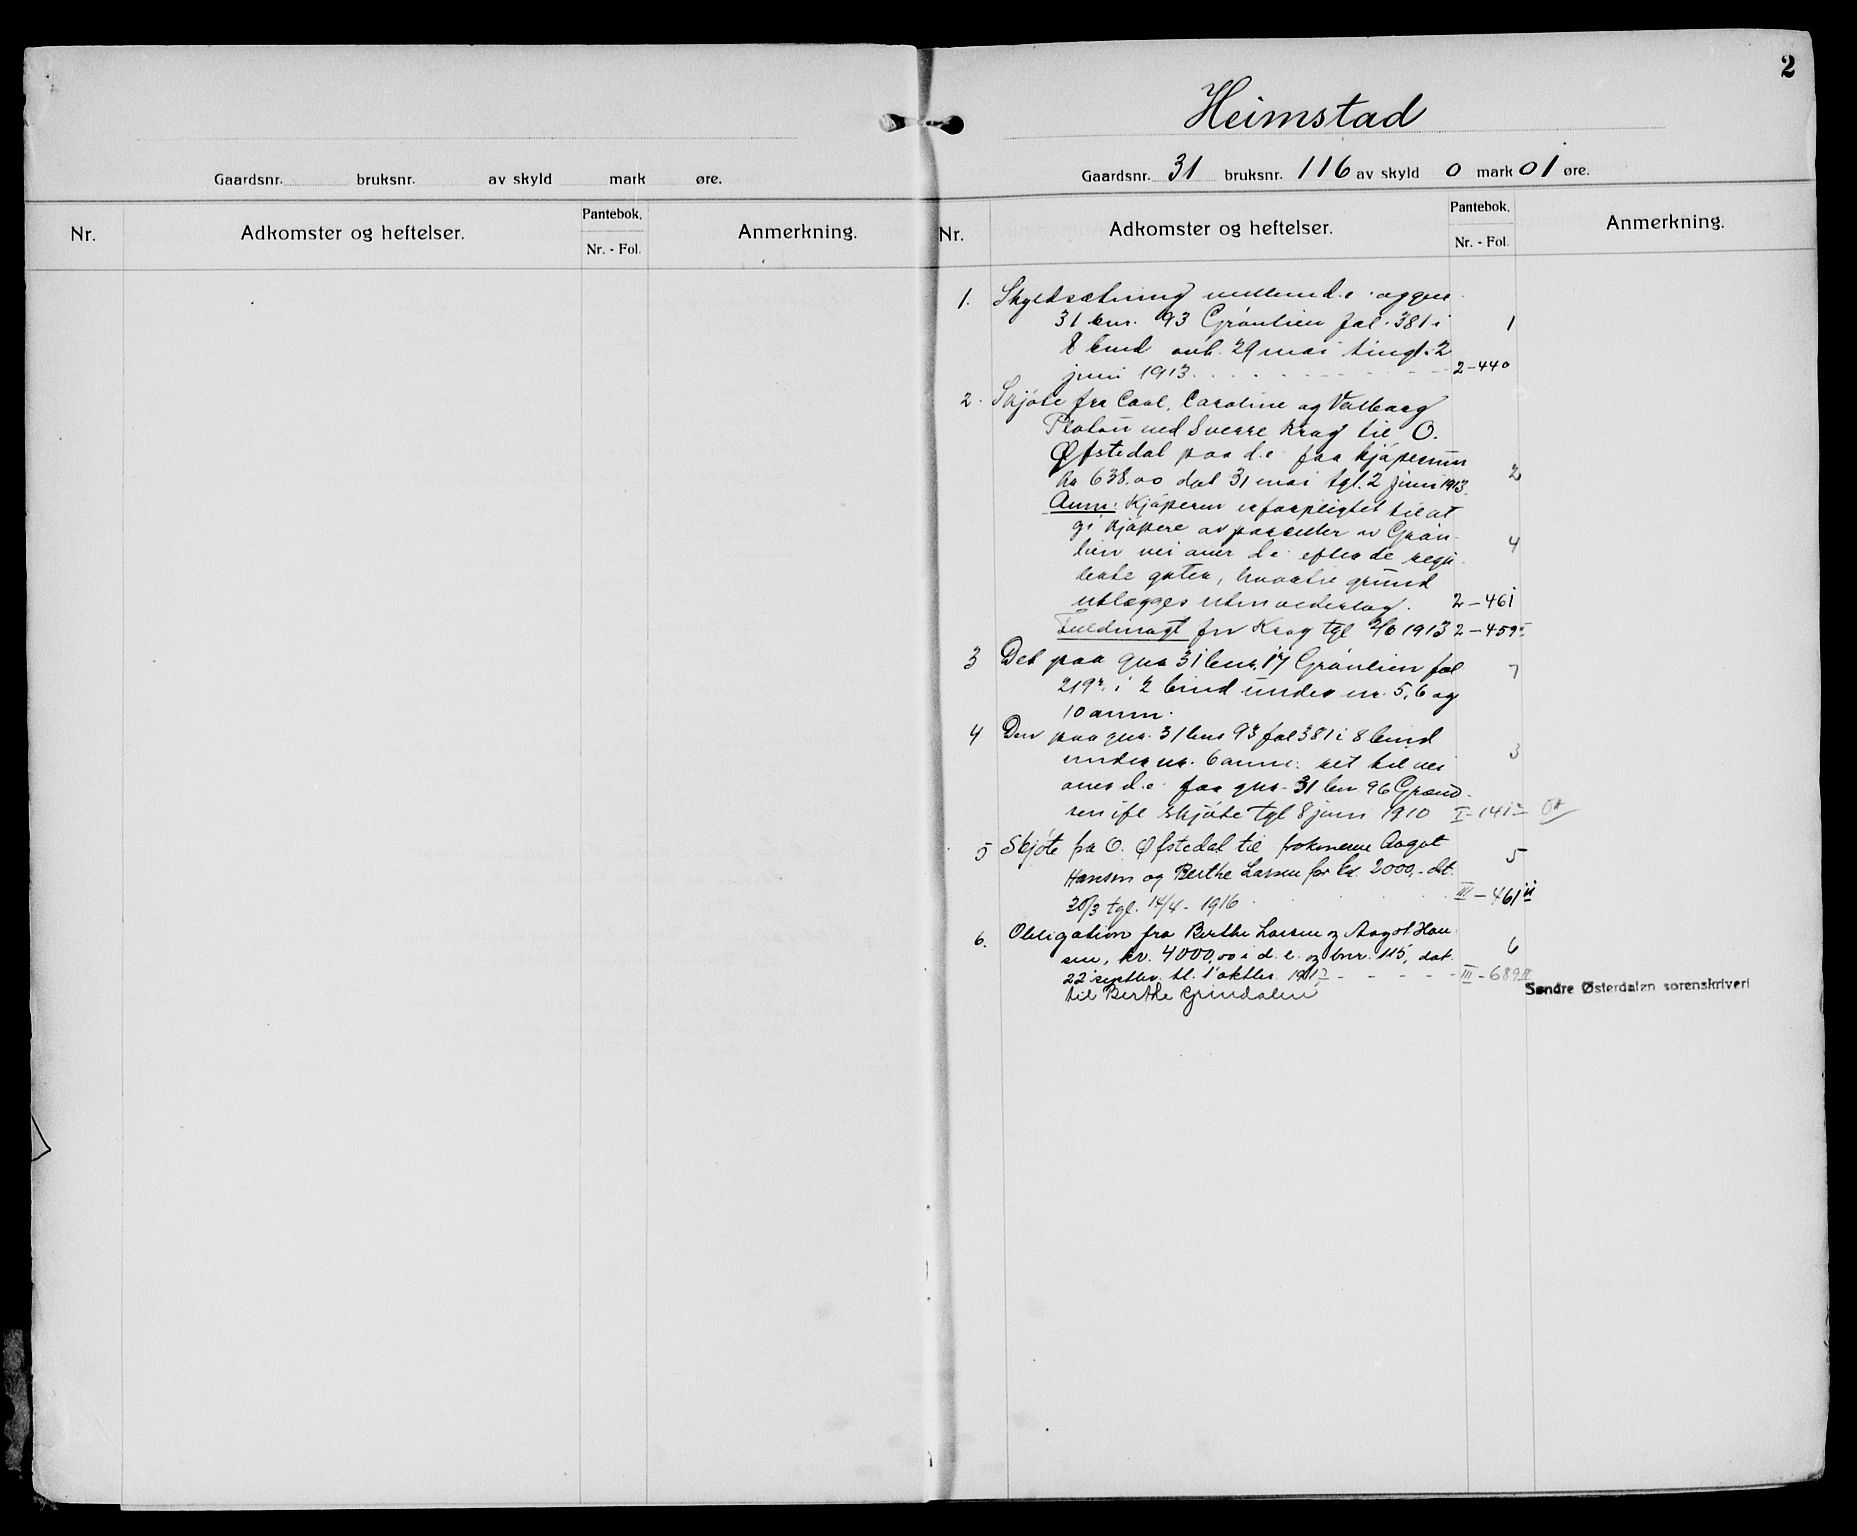 Gaardsnr. bruksnr. av skyld mark øre.
Nr. Adkomster og heftelser. Pantebok. Nr. - Fol. Anmerkning.
2
Heimstad
Gaardsnr. 31 bruksnr. 116 av skyld 0 mark 01 øre.
Nr. Adkomster og heftelser. Pantebok. Nr. - Fol. Anmerkning.
1. Skyldsætning mellem d.e. og gnr.
31 bnr. 93 Grønlien fol. 381 i 1
8 bind avh. 29 mai tingl. 2
juni 1913. 2-440
2. Skjøte fra Carl, Caroline og Valborg
Platou ved Sverre Krag til O.
Øfstedal paa d.e. for kjøpesum
kr 638.00 dat 31 mai tgl. 2 juni 1913. 2
Anm: Kjøperen er forpligtet til at
gi kjøpere av parceller av Grøn-
lien vei over d.e. efter de regu- 4
lerte gater, hvortil grund
utlægges uten vederlag. 2-461
Fuldmagt for Krag tgl 2/6 1913 2-459
3 Det paa gnr 31 bnr. 17 Grønlien fol 7
219 i 2 bind under nr. 5, 6 og
10 anm.
4 Den paa gnr. 31 bnr 93 fol 381 i 8 bind
under nr. 6 anm: ret til vei 3
over d.e. for gnr. 31 bnr 96 Grænd-
sen ifl skjøte tgl 8 juni 1910 I-141
5 Skjøte fra O. Øfstedal til frøknerne Aagot 5
Hansen og Berthe Larsen for kr. 2000,- dat.
30/3 tgl. 14/4 - 1916. III-461
6. Obligation fra Berthe Larsen og Aagot Han- 6
sen, kr. 4000,00 i d.e. og bnr. 115, dat.
22 septbr. tl. 1 oktbr. 1917 III-689
til Berthe Grindalen
Søndre Østerdalen sorenskriveri